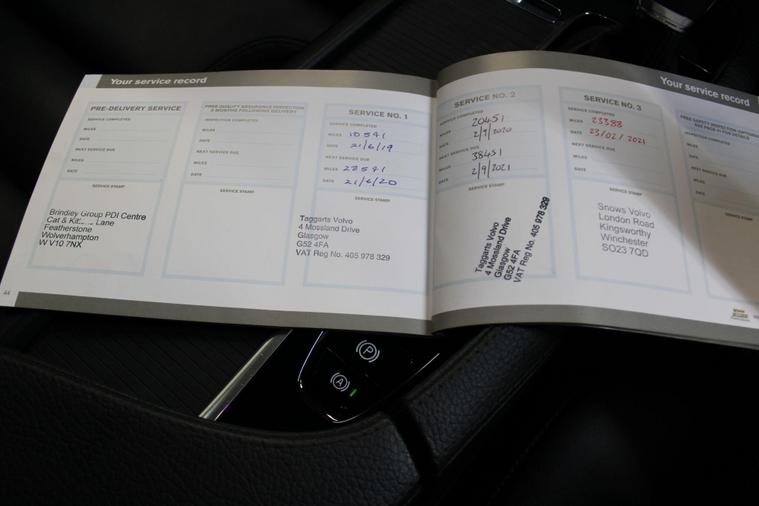 Your service record
PRE-DELIVERY SERVICE
SERVICE COMPLETED
MILES
DATE
NEXT SERVICE DUE
MILES
DATE
SERVICE STAMP
Brindley Group PDI Centre
Cat & Lane
Featherstone
Wolverhampton
W V10 7NX
44
FREE QUALITY ASSURANCE INSPECTION
3 MONTHS FOLLOWING DELIVERY
INSPECTION COMPLETED
MILES
DATE
NEXT SERVICE DUE
MILES
DATE
SERVICE STAMP
SERVICE NO. 1
SERVICE COMPLETED
MILES 10541
DATE 21/6/19
NEXT SERVICE DUE
MILES 22541
DATE 21/6/20
SERVICE STAMP
Taggarts Volvo
4 Mossland Drive
Glasgow
G52 4FA
VAT Reg No. 405 978 329
Your service record
SERVICE NO. 2
SERVICE COMPLETED
MILES 20451
DATE 2/9/2020
NEXT SERVICE DUE
MILES 38451
DATE 2/9/2021
SERVICE STAMP
Taggarts Volvo
4 Mossland Drive
Glasgow
G52 4FA
VAT Reg No. 405 978 329
SERVICE NO. 3
SERVICE COMPLETED
MILES 23388
DATE 23/02/2021
NEXT SERVICE DUE
MILES
DATE
SERVICE STAMP
Snows Volvo
London Road
Kingsworthy
Winchester
SO23 7QD
FREE SAFETY INSPECTION
INSPECTION COMPLETED
MILES
DATE
NEXT SERVICE DUE
MILES
DATE
SERVICE STAMP
P
A